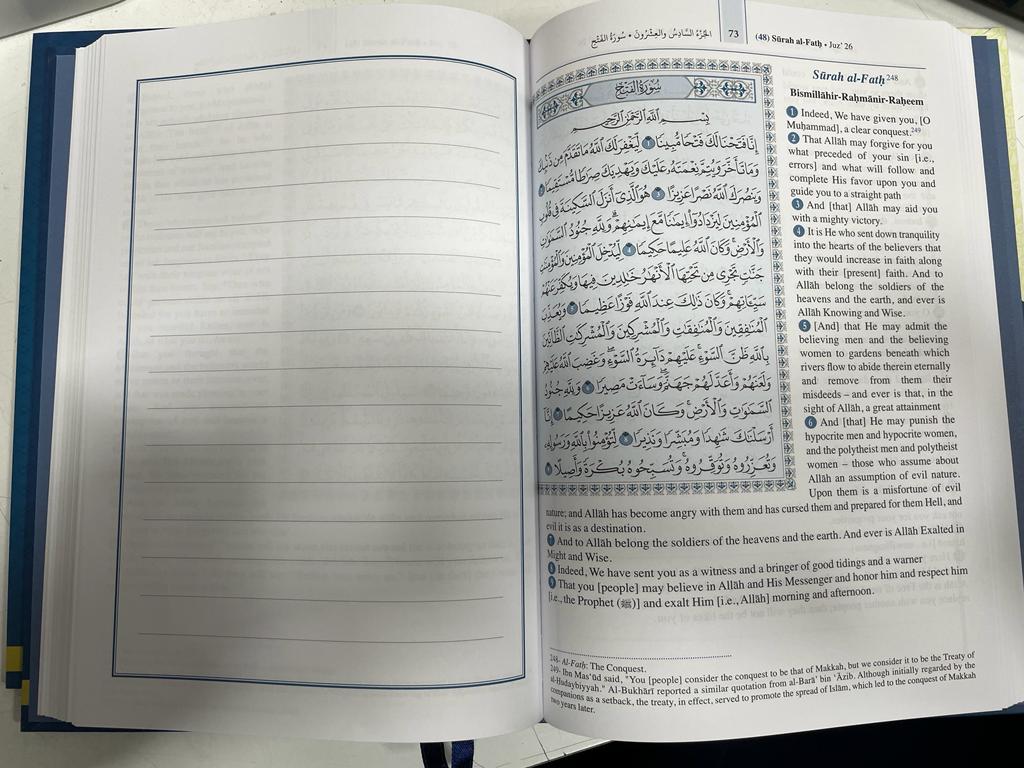 الجُزْءُ السَّادِسُ وَالعِشْرُونَ • سُورَةُ الفَتْحِ
73
(48) Sūrah al-Fatḥ • Juz' 26
سُورَةُ الفَتْحِ
بِسْمِ ٱللَّهِ ٱلرَّحْمَٰنِ ٱلرَّحِيمِ
إِنَّا فَتَحْنَا لَكَ فَتْحًا مُّبِينًا ١ لِّيَغْفِرَ لَكَ ٱللَّهُ مَا تَقَدَّمَ مِن ذَنۢبِكَ
وَمَا تَأَخَّرَ وَيُتِمَّ نِعْمَتَهُۥ عَلَيْكَ وَيَهْدِيَكَ صِرَٰطًا مُّسْتَقِيمًا ٢
وَيَنصُرَكَ ٱللَّهُ نَصْرًا عَزِيزًا ٣ هُوَ ٱلَّذِىٓ أَنزَلَ ٱلسَّكِينَةَ فِى قُلُوبِ
ٱلْمُؤْمِنِينَ لِيَزْدَادُوٓا۟ إِيمَٰنًا مَّعَ إِيمَٰنِهِمْ ۗ وَلِلَّهِ جُنُودُ ٱلسَّمَٰوَٰتِ
وَٱلْأَرْضِ ۚ وَكَانَ ٱللَّهُ عَلِيمًا حَكِيمًا ٤ لِّيُدْخِلَ ٱلْمُؤْمِنِينَ وَٱلْمُؤْمِنَٰتِ
جَنَّٰتٍ تَجْرِى مِن تَحْتِهَا ٱلْأَنْهَٰرُ خَٰلِدِينَ فِيهَا وَيُكَفِّرَ عَنْهُمْ
سَيِّـَٔاتِهِمْ ۚ وَكَانَ ذَٰلِكَ عِندَ ٱللَّهِ فَوْزًا عَظِيمًا ٥ وَيُعَذِّبَ
ٱلْمُنَٰفِقِينَ وَٱلْمُنَٰفِقَٰتِ وَٱلْمُشْرِكِينَ وَٱلْمُشْرِكَٰتِ ٱلظَّآنِّينَ
بِٱللَّهِ ظَنَّ ٱلسَّوْءِ ۚ عَلَيْهِمْ دَآئِرَةُ ٱلسَّوْءِ ۖ وَغَضِبَ ٱللَّهُ عَلَيْهِمْ
وَلَعَنَهُمْ وَأَعَدَّ لَهُمْ جَهَنَّمَ ۖ وَسَآءَتْ مَصِيرًا ٦ وَلِلَّهِ جُنُودُ
ٱلسَّمَٰوَٰتِ وَٱلْأَرْضِ ۚ وَكَانَ ٱللَّهُ عَزِيزًا حَكِيمًا ٧ إِنَّآ
أَرْسَلْنَٰكَ شَٰهِدًا وَمُبَشِّرًا وَنَذِيرًا ٨ لِّتُؤْمِنُوا۟ بِٱللَّهِ وَرَسُولِهِۦ
وَتُعَزِّرُوهُ وَتُوَقِّرُوهُ وَتُسَبِّحُوهُ بُكْرَةً وَأَصِيلًا ٩
Sūrah al-Fatḥ 248
Bismillāhir-Raḥmānir-Raḥeem
1 Indeed, We have given you, [O
Muḥammad], a clear conquest.249
2 That Allāh may forgive for you
what preceded of your sin [i.e.,
errors] and what will follow and
complete His favor upon you and
guide you to a straight path
3 And [that] Allāh may aid you
with a mighty victory.
4 It is He who sent down tranquility
into the hearts of the believers that
they would increase in faith along
with their [present] faith. And to
Allāh belong the soldiers of the
heavens and the earth, and ever is
Allāh Knowing and Wise.
5 [And] that He may admit the
believing men and the believing
women to gardens beneath which
rivers flow to abide therein eternally
and remove from them their
misdeeds – and ever is that, in the
sight of Allāh, a great attainment
6 And [that] He may punish the
hypocrite men and hypocrite women,
and the polytheist men and polytheist
women – those who assume about
Allāh an assumption of evil nature.
Upon them is a misfortune of evil
nature; and Allāh has become angry with them and has cursed them and prepared for them Hell, and
evil it is as a destination.
7 And to Allāh belong the soldiers of the heavens and the earth. And ever is Allāh Exalted in
Might and Wise.
8 Indeed, We have sent you as a witness and a bringer of good tidings and a warner
9 That you [people] may believe in Allāh and His Messenger and honor him and respect him
[i.e., the Prophet (ﷺ)] and exalt Him [i.e., Allāh] morning and afternoon.
248- Al-Fatḥ: The Conquest.
249- Ibn Mas'ūd said, "You [people] consider the conquest to be that of Makkah, but we consider it to be the Treaty of
al-Ḥudaybiyyah." Al-Bukhārī reported a similar quotation from al-Barā' bin 'Āzib. Although initially regarded by the
companions as a setback, the treaty, in effect, served to promote the spread of Islām, which led to the conquest of Makkah
two years later.